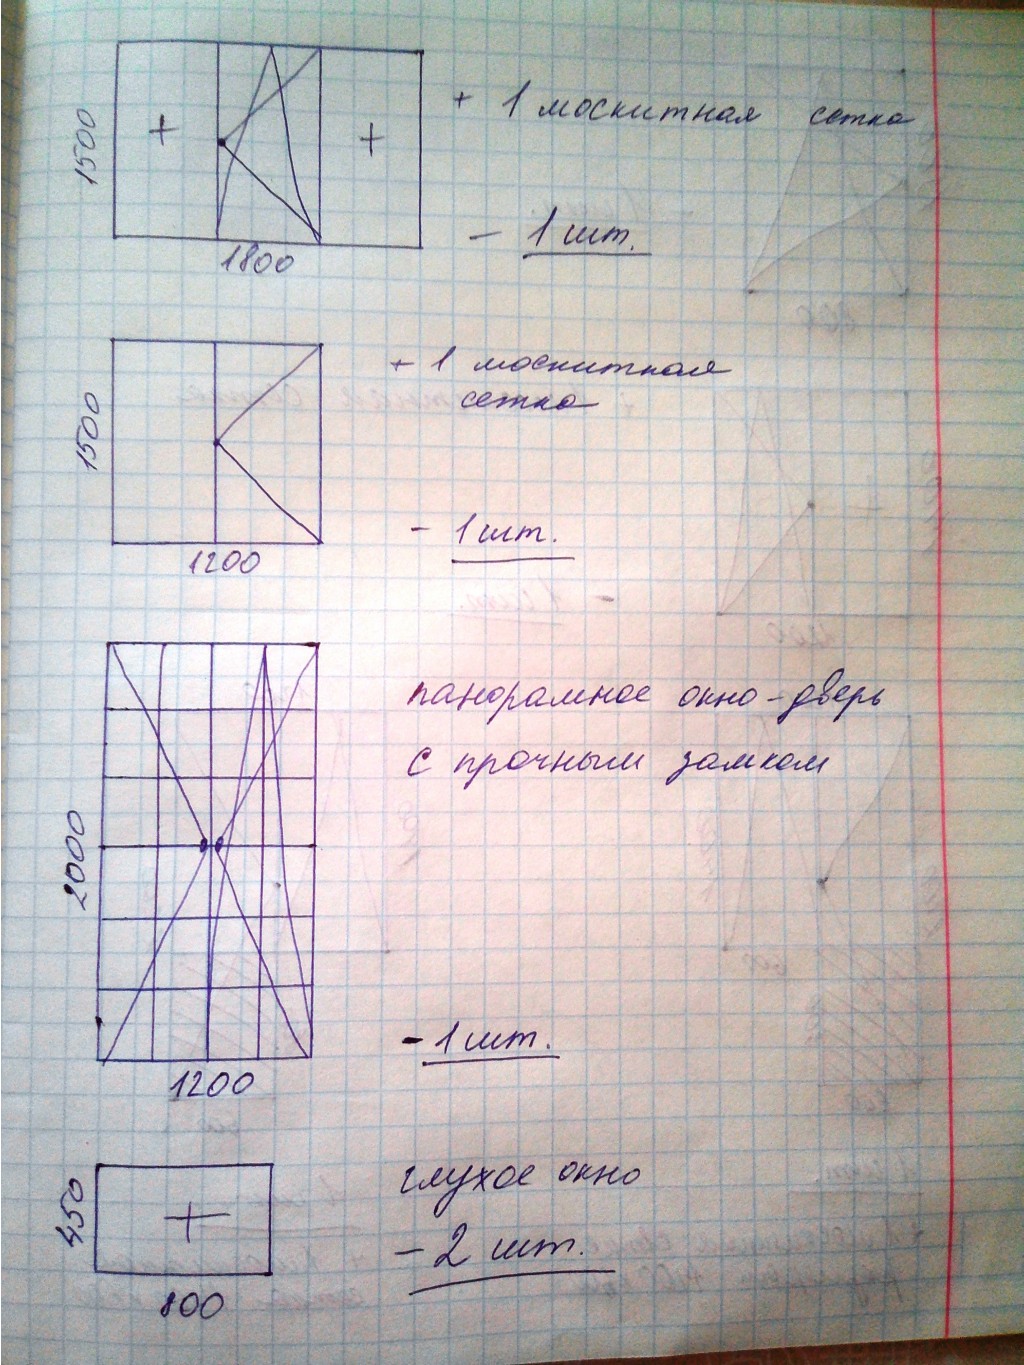 1500
+ 1 москитная сетка
- 1 шт.
1800
1500
+ 1 москитная
сетка
- 1 шт.
1200
2000
панорамное окно-дверь
с прочным замком
- 1 шт.
1200
450
глухое окно
- 2 шт.
800